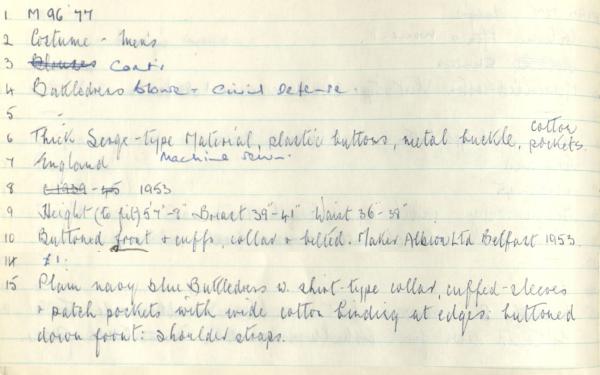 1 M 96 '77
2 Costume - Men's
3 Blouses Coats
4 Battledress blouse - Civil Defense.
5 -
cotton
6 Thick Serge-type Material, plastic buttons, metal buckle, pockets.
7 England Machine sewn.
8 c1939-45 1953
9 Height (to fit) 5'7"-8" Breast 39"-41" Waist 36"-38"
10 Buttoned front & cuffs, collar & belted. Maker Albion Ltd Belfast 1953.
14 £1:
15 Plain navy blue Battledress w. shirt-type collar, cuffed-sleeves
& patch pockets with wide cotton binding at edges: buttoned
down front: shoulder straps.